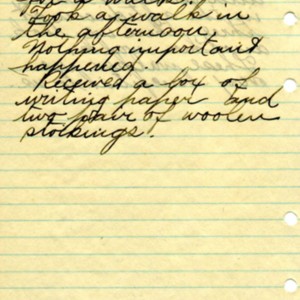 for a walk.
Took a walk in
the afternoon.
Nothing important
happened.
Received a box of
writing paper and
two pair of woolen
stockings.